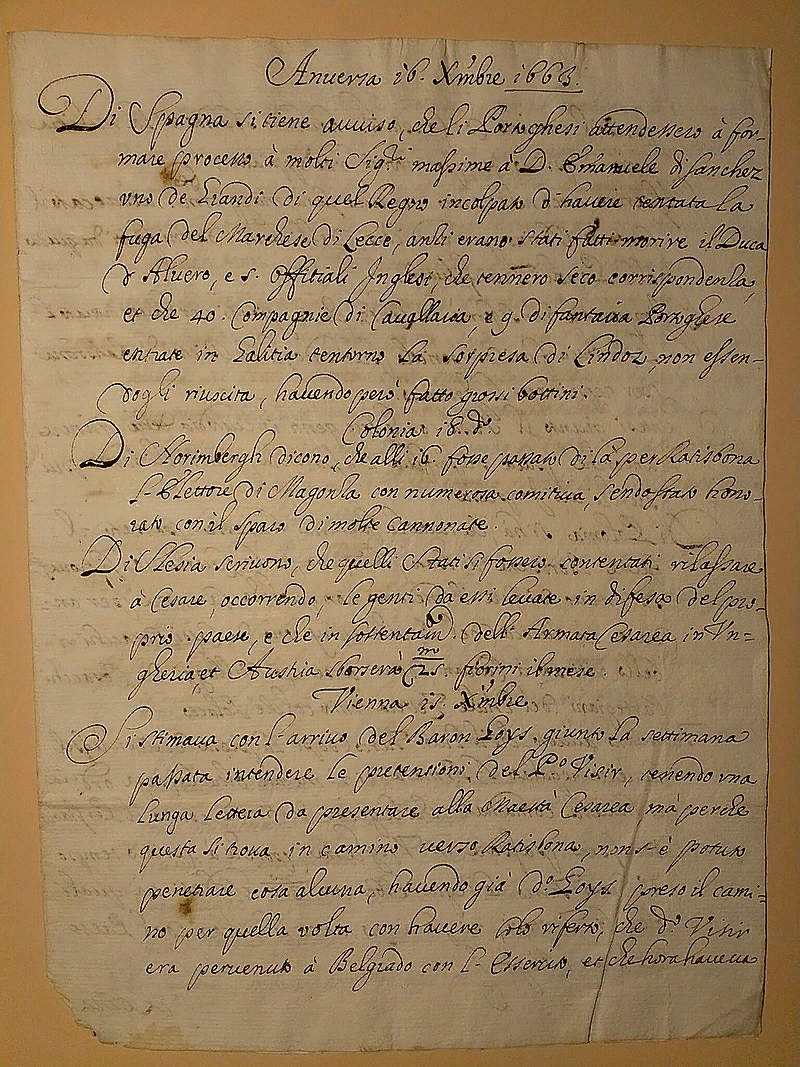 Anuersa 16. Xmbre 1663.
Di Spagna si tiene auuiso, che li Portoghesi attendessero à for-
mare processo à molti Sig.ri massime à D. Emanuele di sanchez
vno de Grandi di quel Regno incolpato d'hauere tentata la
fuga del Marchese di Lecce, anzi erano stati fatti morire il Duca
d'Aluero, e 5. offitiali Inglesi, che tennero seco corrispondenza,
et che 40. Compagnie di Cauallaria, e 9. di fantaria Portoghese
entrate in Galitia tentorno la sorpresa di Lindoz, non essen-
dogli riuscita, hauendo però fatto grossi bottini.
Colonia 18. d.o
Di Norimbergh dicono, che alli 16 fosse passato di là per Ratisbona
l'Elettore di Magonza con numerosa comitiua, sendo stato hono-
rato con il sparo di molte cannonate.
Di Slesia scriuono, che quelli Stati si fossero contentati rilassare
à Cesare, occorrendo, le genti da essi leuate in difesa del pro-
prio paese, e che in sostentam.to dell'Armata Cesarea in Vn-
gheria, et Austria sborserà 25m. fiorini il mese.
Vienna 15. Xmbre
Si stimaua con l'arriuo del Baron Goys giunto la settimana
passata intendere le pretensioni del P.o Visir, tenendo vna
lunga lettera da presentare alla Maestà Cesarea mà perche
questa si troua in camino verso Ratisbona, non s'è potuto
penetrare cosa alcuna, hauendo già d.o Goys preso il cami-
no per quella volta con hauere solo riferto, che d.o Visir
era peruenuto à Belgrado con l'Essercito, et che hora haueua